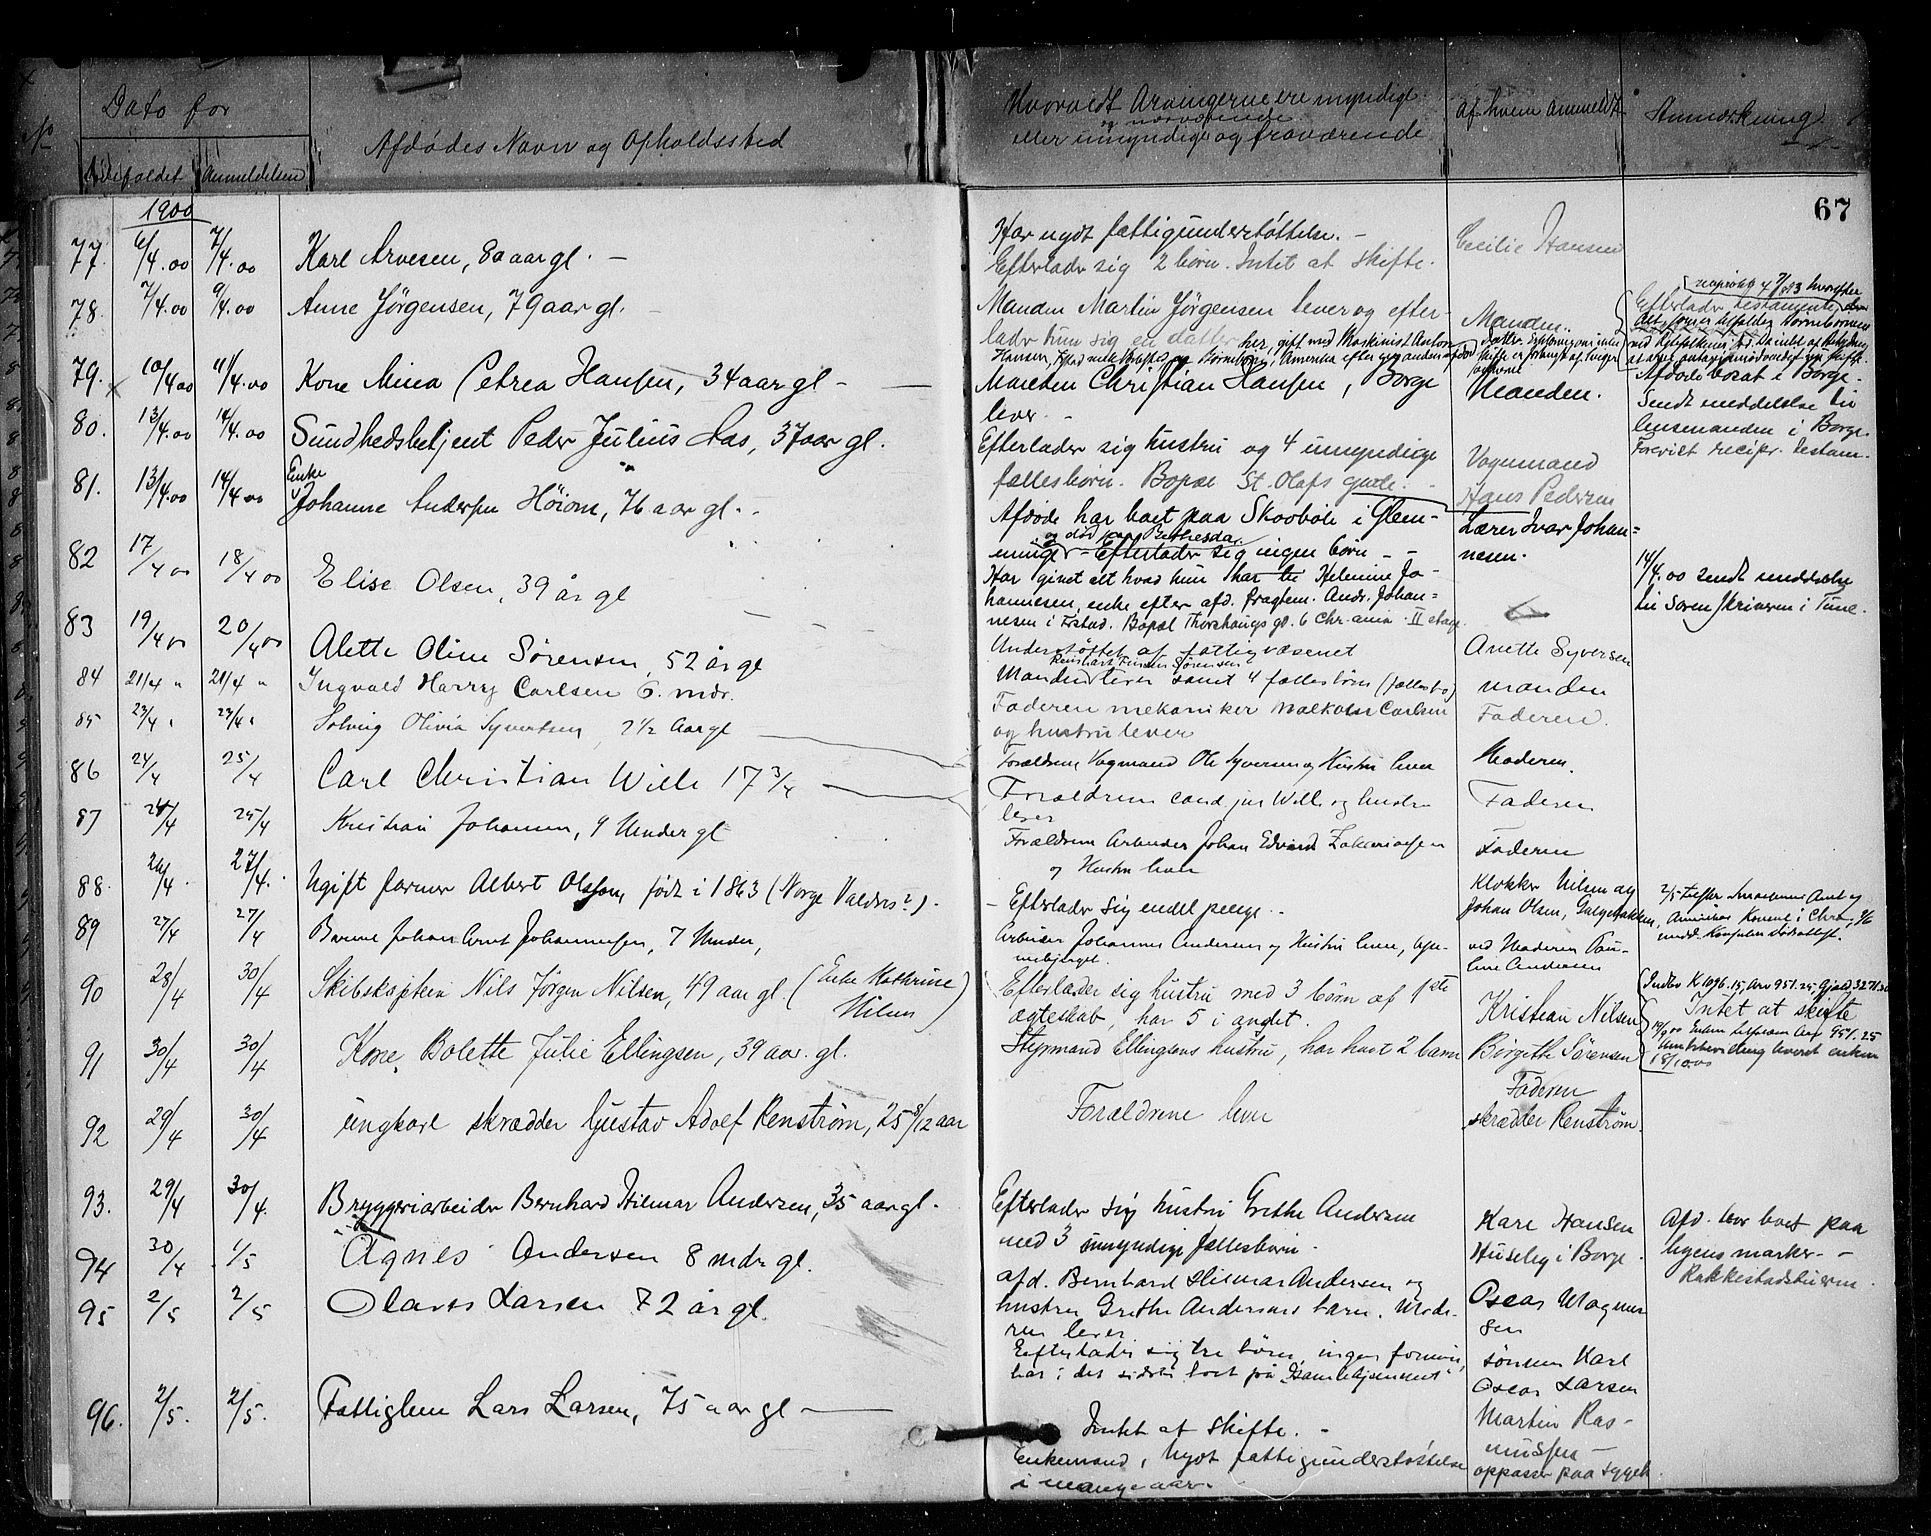 No
Dato for
Dødsfaldet
Anmeldelsen
Afdødes Navn og Opholdssted
Hvorvidt Arvingerne ere myndige
og nærværende
eller umyndige og fraværende
Af hvem anmeldt
Anmærkning
67
1900
77. 6/4.00 7/4.00 Karl Arvesen, 80 aar gl. —
Har nydt fattigunderstøttelse. —
Efterlader sig 2 børn. Intet at skifte.
Cecilie Hansen
78. 7/4.00 9/4.00 Anne Jørgensen, 79 aar gl. -
Manden Martin Jørgensen lever og efter-
lader hun sig en datter her, gift med Maskinist Anton
Manden.
79. 10/4 00 11/4.00 Kone Mina Petrea Hansen, 34 aar gl - —
Manden Christian Hansen, Borge
lever. -
Manden.
Afdøde bosat i Borge.
Sendt meddelelse til
lensmanden i Borge.
80. 13/4.00 14/4.00 Sundhedsbetjent Peder Julius Aas, 37 aar gl.
Efterlader sig hustru og 4 umyndige
fællesbørn. Bopæl St. Olafs gade. -
Vognmand
Hans Pedersen
Forevist recipr. testam.
81. 13/4.00 14/4 00 Enke
Johanne Andersen Höiom, 76 aar gl. -
Afdøde har boet paa Skovbøle i Glem-
og død paa Bethesda
minge - Efterlader sig ingen børn - -
Har givet alt hvad hun har til Helenine Jo-
hannesen, enke efter afd. fragtem. Andr. Johan=
nesen i F.stad. Bopæl Thorshaugs gd. 6 Chr.ania. II etage
Lærer Ivar Johan=
nesen.
14/4.00 sendt meddelelse
til Sorenskriveren i Tune.
82 17/4 00 18/4 00 Elise Olsen, 39 år gl
Understøttet af fattigvæsenet
Anette Syversen
83 19/4 00 20/4 00 Alette Oline Sørensen, 52 år gl
Manden lever samt 4 fællesbørn (fællesbo)
manden
84 21/4 " 21/4 " Ingvald Harry Carlsen 6. mdr.
Faderen mekaniker Malkolm Carlsen
og hustru lever
Faderen.
85 23/4 " 23/4 " Solveig Olivia Syvertsen, 2 1/2 Aar gl
Forældrene Vognmand Ole Syversen og Hustru lever
Moderen.
86 24/4 25/4 Carl Christian Wille 17 3/4
Forældrene cand jur Wille og hustru
lever
Faderen
87 24/4 25/4 Kristian Johansen, 9 Mnder gl
Forældrene Arbeider Johan Edvard Zakariassen
og Hustru lever
Faderen
88. 26/4. 27/4. Ugift farmer Albert Olsson, født i 1863 (Norge Valdres?).
- Efterlader sig endel penge. -
Klokker Nilsen og
Johan Olsen,
89 27/4 27/4 Barnet Johan Arnt Johannessen, 7 Mnder,
Arbeider Johannes Andersen og Hustru lever,
ved Moderen Pau-
line Andersen
90 28/4 30/4 Skibskaptein Nils Jørgen Nilsen, 49 aar gl. (Enke Kathrine)
Nilsen
Efterlader sig hustru med 3 børn af 1ste
ægteskab, har 5 i andet.
Kristian Nilsen
Indbo K 1096.15, Arv 951.25, Gjæld 3271.30
Intet at skifte
91 30/4 30/4 Kone Bolette Julie Ellingsen, 39 aar. gl.
Styrmand Ellingsens hustru, har havt 2 barn
Børgitte Sørensen
92 29/4 30/4 ungkarl skrædder Gustav Adolf Renstrøm, 25 8/12 aar
Forældrene lever
Faderen
skrædder Renstrøm.
93. 29/4 30/4. Bryggeriarbeider Bernhard Hilmar Andersen, 35 aar gl.
Efterlader sig hustru Grethe Andersen
med 3 umyndige fællesbørn.
Karl Hansen
Huseby i Borge.
Afd. har boet paa
byens marker. -
Rakkestadsveien.
94 30/4 1/5 Agnes Andersen 8 mdr gl.
afd. Bernhard Hilmar Andersen og
hustru Grethe Andersens barn. Mode-
ren lever
Oscar Magnus
sen
95 2/5 2/5 Olaves Larsen 72 år gl.
Efterlader sig tre børn, ingen formue,
har i det sidste boet på Gamlehjemmet
sønnen Karl
Oscar Larsen
96. 2/5. 2/5. Fattiglem Lars Larsen, 75 aar gl —
Intet at skifte. -
Enkemand, Nydt fattigunderstøttelse
i mange aar.
Martin Ras-
mussen —
oppasser paa sygeh.